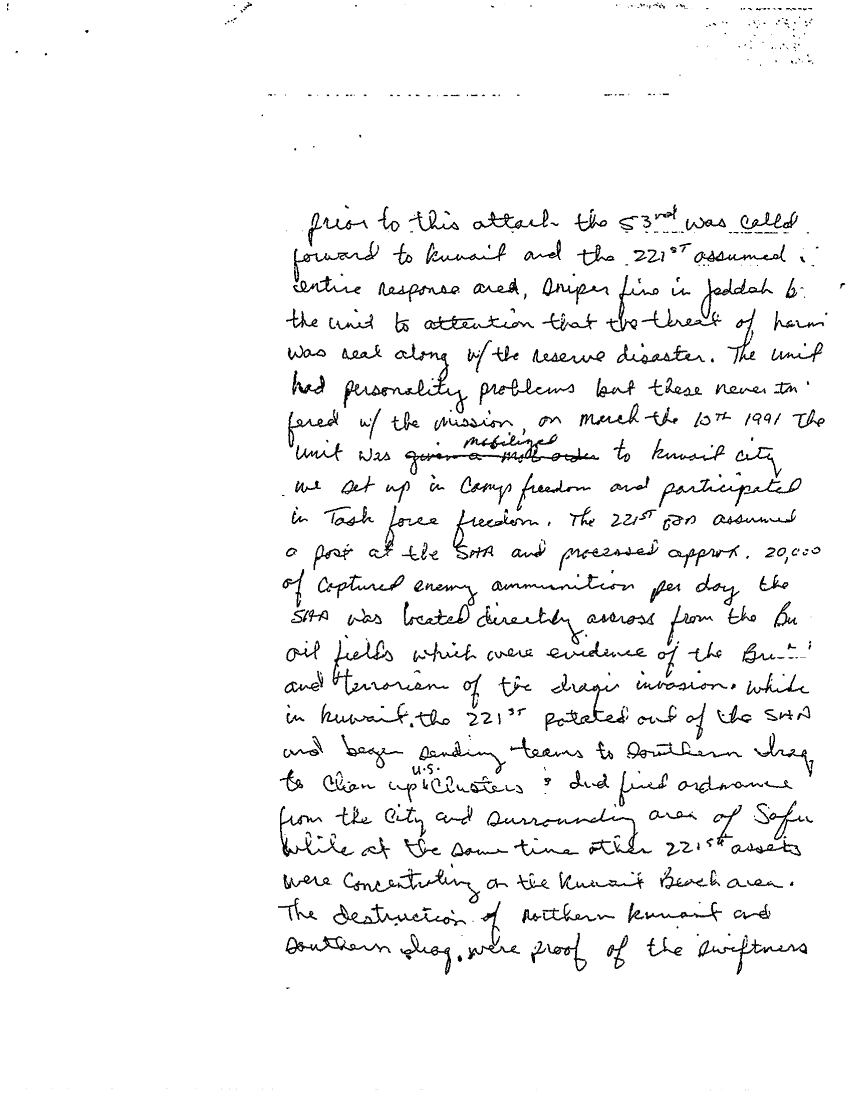 prior to this attack the 53rd was called
forward to Kuwait and the 221ST assumed
entire response area, sniper fire in Jeddah
the unit to attention that the threat of
was real along w/ the reserve disaster. The unit
had personality problems but these never in
fered w/ the mission, on march the 10TH 1991 The
unit was given a mob order mobilized to Kuwait city
we set up in Camp freedom and participated
in Task force freedom. The 221ST EOD assumed
a post at the SHA and processed approx. 20,000
of captured enemy ammunition per day the
SHA was located directly assross from the Bu
oil fields which were evidence of the
and terrorism of the iraqi invasion. While
in Kuwait. the 221ST rotated out of the SHA
and began sending teams to Southern iraq
to Clean up U.S. Clusters & dud fired ordnance
from the City and surrounding area of Safw
while at the same time other 221st assets
were Concentrating on the Kuwait Beach area.
The destruction of northern Kuwait and
Southern iraq. were proof of the swiftness